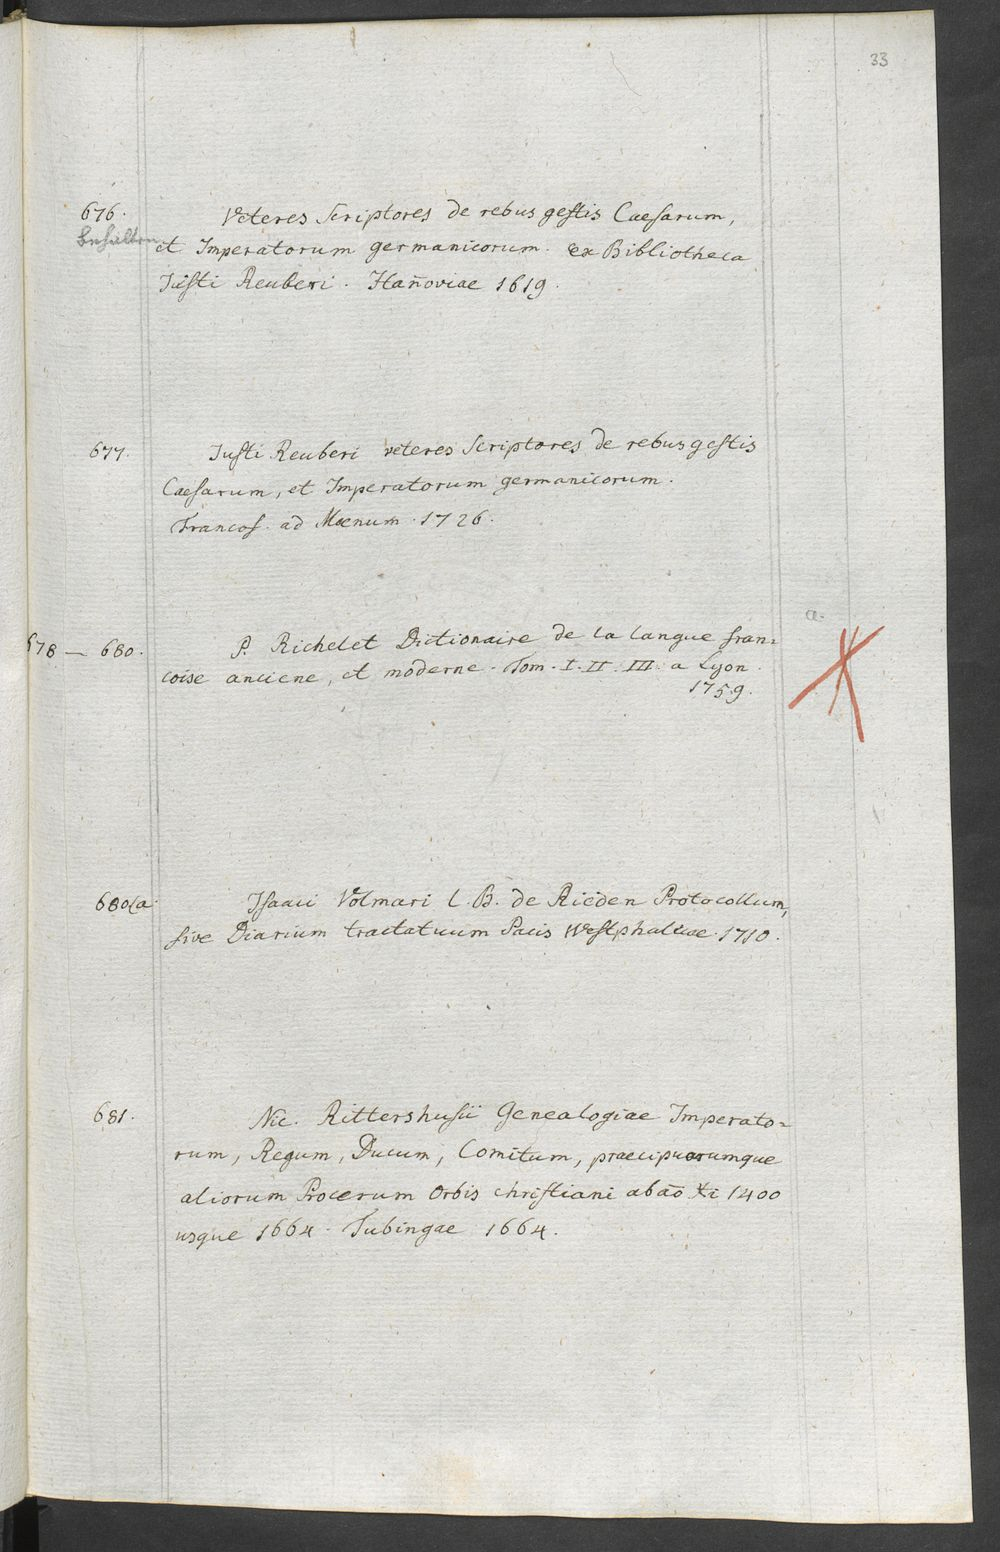 33
676. Veteres Scriptores de rebus gestis Caesarum,
behalten
et Imperatorum germanicorum. ex Bibliotheca
Justi Reuberi. Han̄oviae 1619.
677. Justi Reuberi veteres Scriptores de rebus gestis
Caesarum, et Imperatorum germanicorum.
Francof. ad Moenum. 1726.
a.
678 — 680. P. Richelet Dictionaire de la langue fran=
coise anciene, et moderne. Tom. I. II. III. a Lyon.
1759.
680(a. Isaaci Volmari L. B. de Rieden Protocollum,
sive Diarium tractatuum Pacis Westphalicae. 1710.
681. Nic. Rittershusii Genealogiae Imperato=
rum, Regum, Ducum, Comitum, praecipuorumque
aliorum Procerum Orbis christiani ab aō Xi 1400
usque 1664. Tubingae 1664.